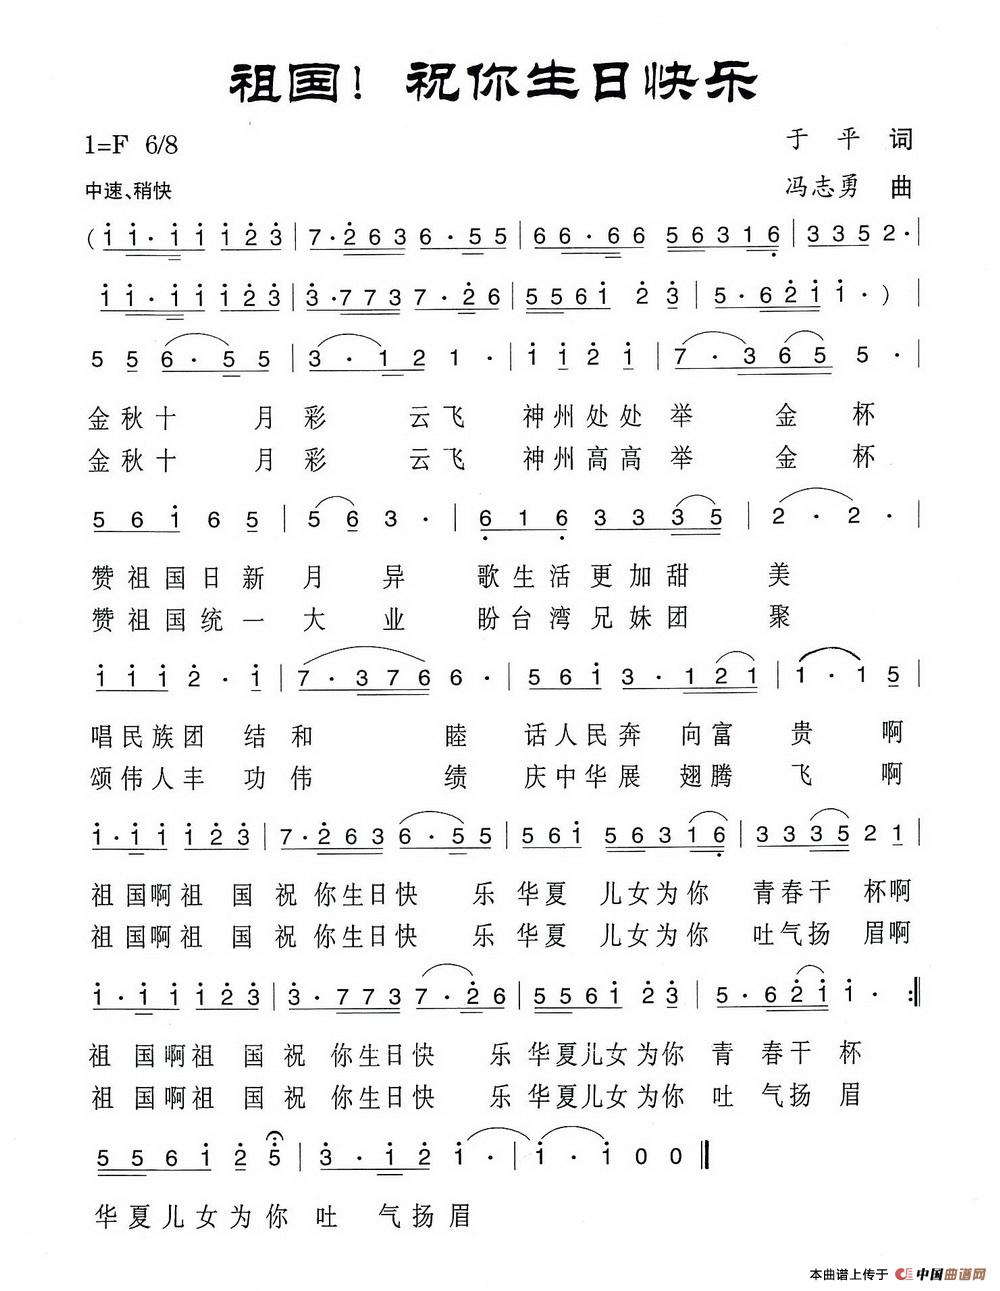 祖国！祝你生日快乐
1=F 6/8
于 平 词
中速、稍快
冯志勇 曲
( i i · i i i 2 3 | 7 · 2 6 3 6 · 5 5 | 6 6 · 6 6 5 6 3 1 6 | 3 3 5 2 · |
i i · i i i 2 3 | 3 · 7 7 3 7 · 2 6 | 5 5 6 i 2 3 | 5 · 6 2 i i · ) |
5 5 6 · 5 5 | 3 · 1 2 1 · | i i 2 i | 7 · 3 6 5 5 · |
金秋十 月彩 云飞 神州处处举 金 杯
金秋十 月彩 云飞 神州高高举 金 杯
5 6 i 6 5 | 5 6 3 · | 6 1 6 3 3 3 5 | 2 · 2 · |
赞祖国日新 月 异 歌生活更加甜 美
赞祖国统一 大 业 盼台湾兄妹团 聚
i i i 2 · i | 7 · 3 7 6 6 · | 5 6 i 3 · 1 2 1 | i · i 5 |
唱民族团 结和 睦 话人民奔 向富 贵 啊
颂伟人丰 功伟 绩 庆中华展 翅腾 飞 啊
i · i i i 2 3 | 7 · 2 6 3 6 · 5 5 | 5 6 i 5 6 3 1 6 | 3 3 3 5 2 1 |
祖国啊祖 国祝 你生日快 乐 华夏 儿女为你 青春干 杯啊
祖国啊祖 国祝 你生日快 乐 华夏 儿女为你 吐气扬 眉啊
i · i i i 2 3 | 3 · 7 7 3 7 · 2 6 | 5 5 6 i 2 3 | 5 · 6 2 i i · :‖
祖 国啊祖 国祝 你生日快 乐 华夏儿女为你 青 春干 杯
祖 国啊祖 国祝 你生日快 乐 华夏儿女为你 吐 气扬 眉
5 5 6 i 2 5 | 3 · i 2 i · | i · i 0 0 ‖
华夏儿女为你 吐 气扬眉
本曲谱上传于 中国曲谱网